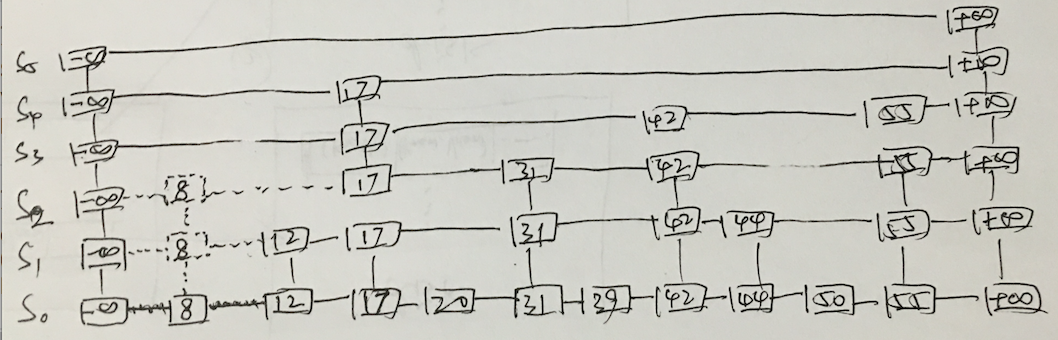 S5 -∞ +∞
S4 -∞ 17 +∞
S3 -∞ 17 42 55 +∞
S2 -∞ 8 17 31 42 55 +∞
S1 -∞ 8 12 17 31 42 44 55 +∞
S0 -∞ 8 12 17 20 31 39 42 44 50 55 +∞